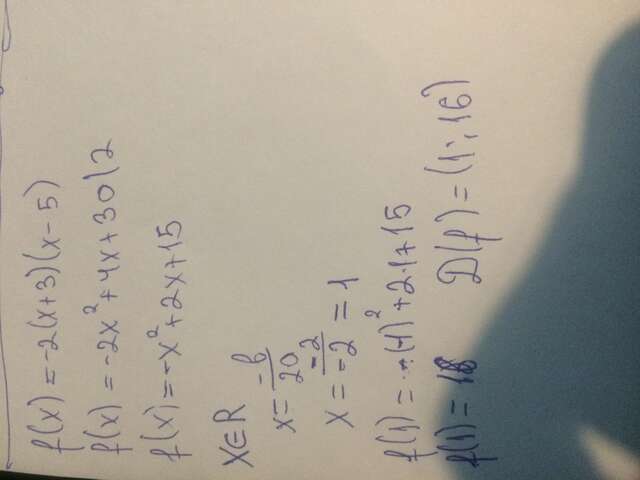 f(x) = -2(x+3)(x-5)
f(x) = -2x²+4x+30|2
f(x) = -x²+2x+15
x∈R
x = -b/2a
x = -2/-2 = 1
f(1) = -(1)²+2·1+15
f(1) = 16 D(f) = (1; 16)